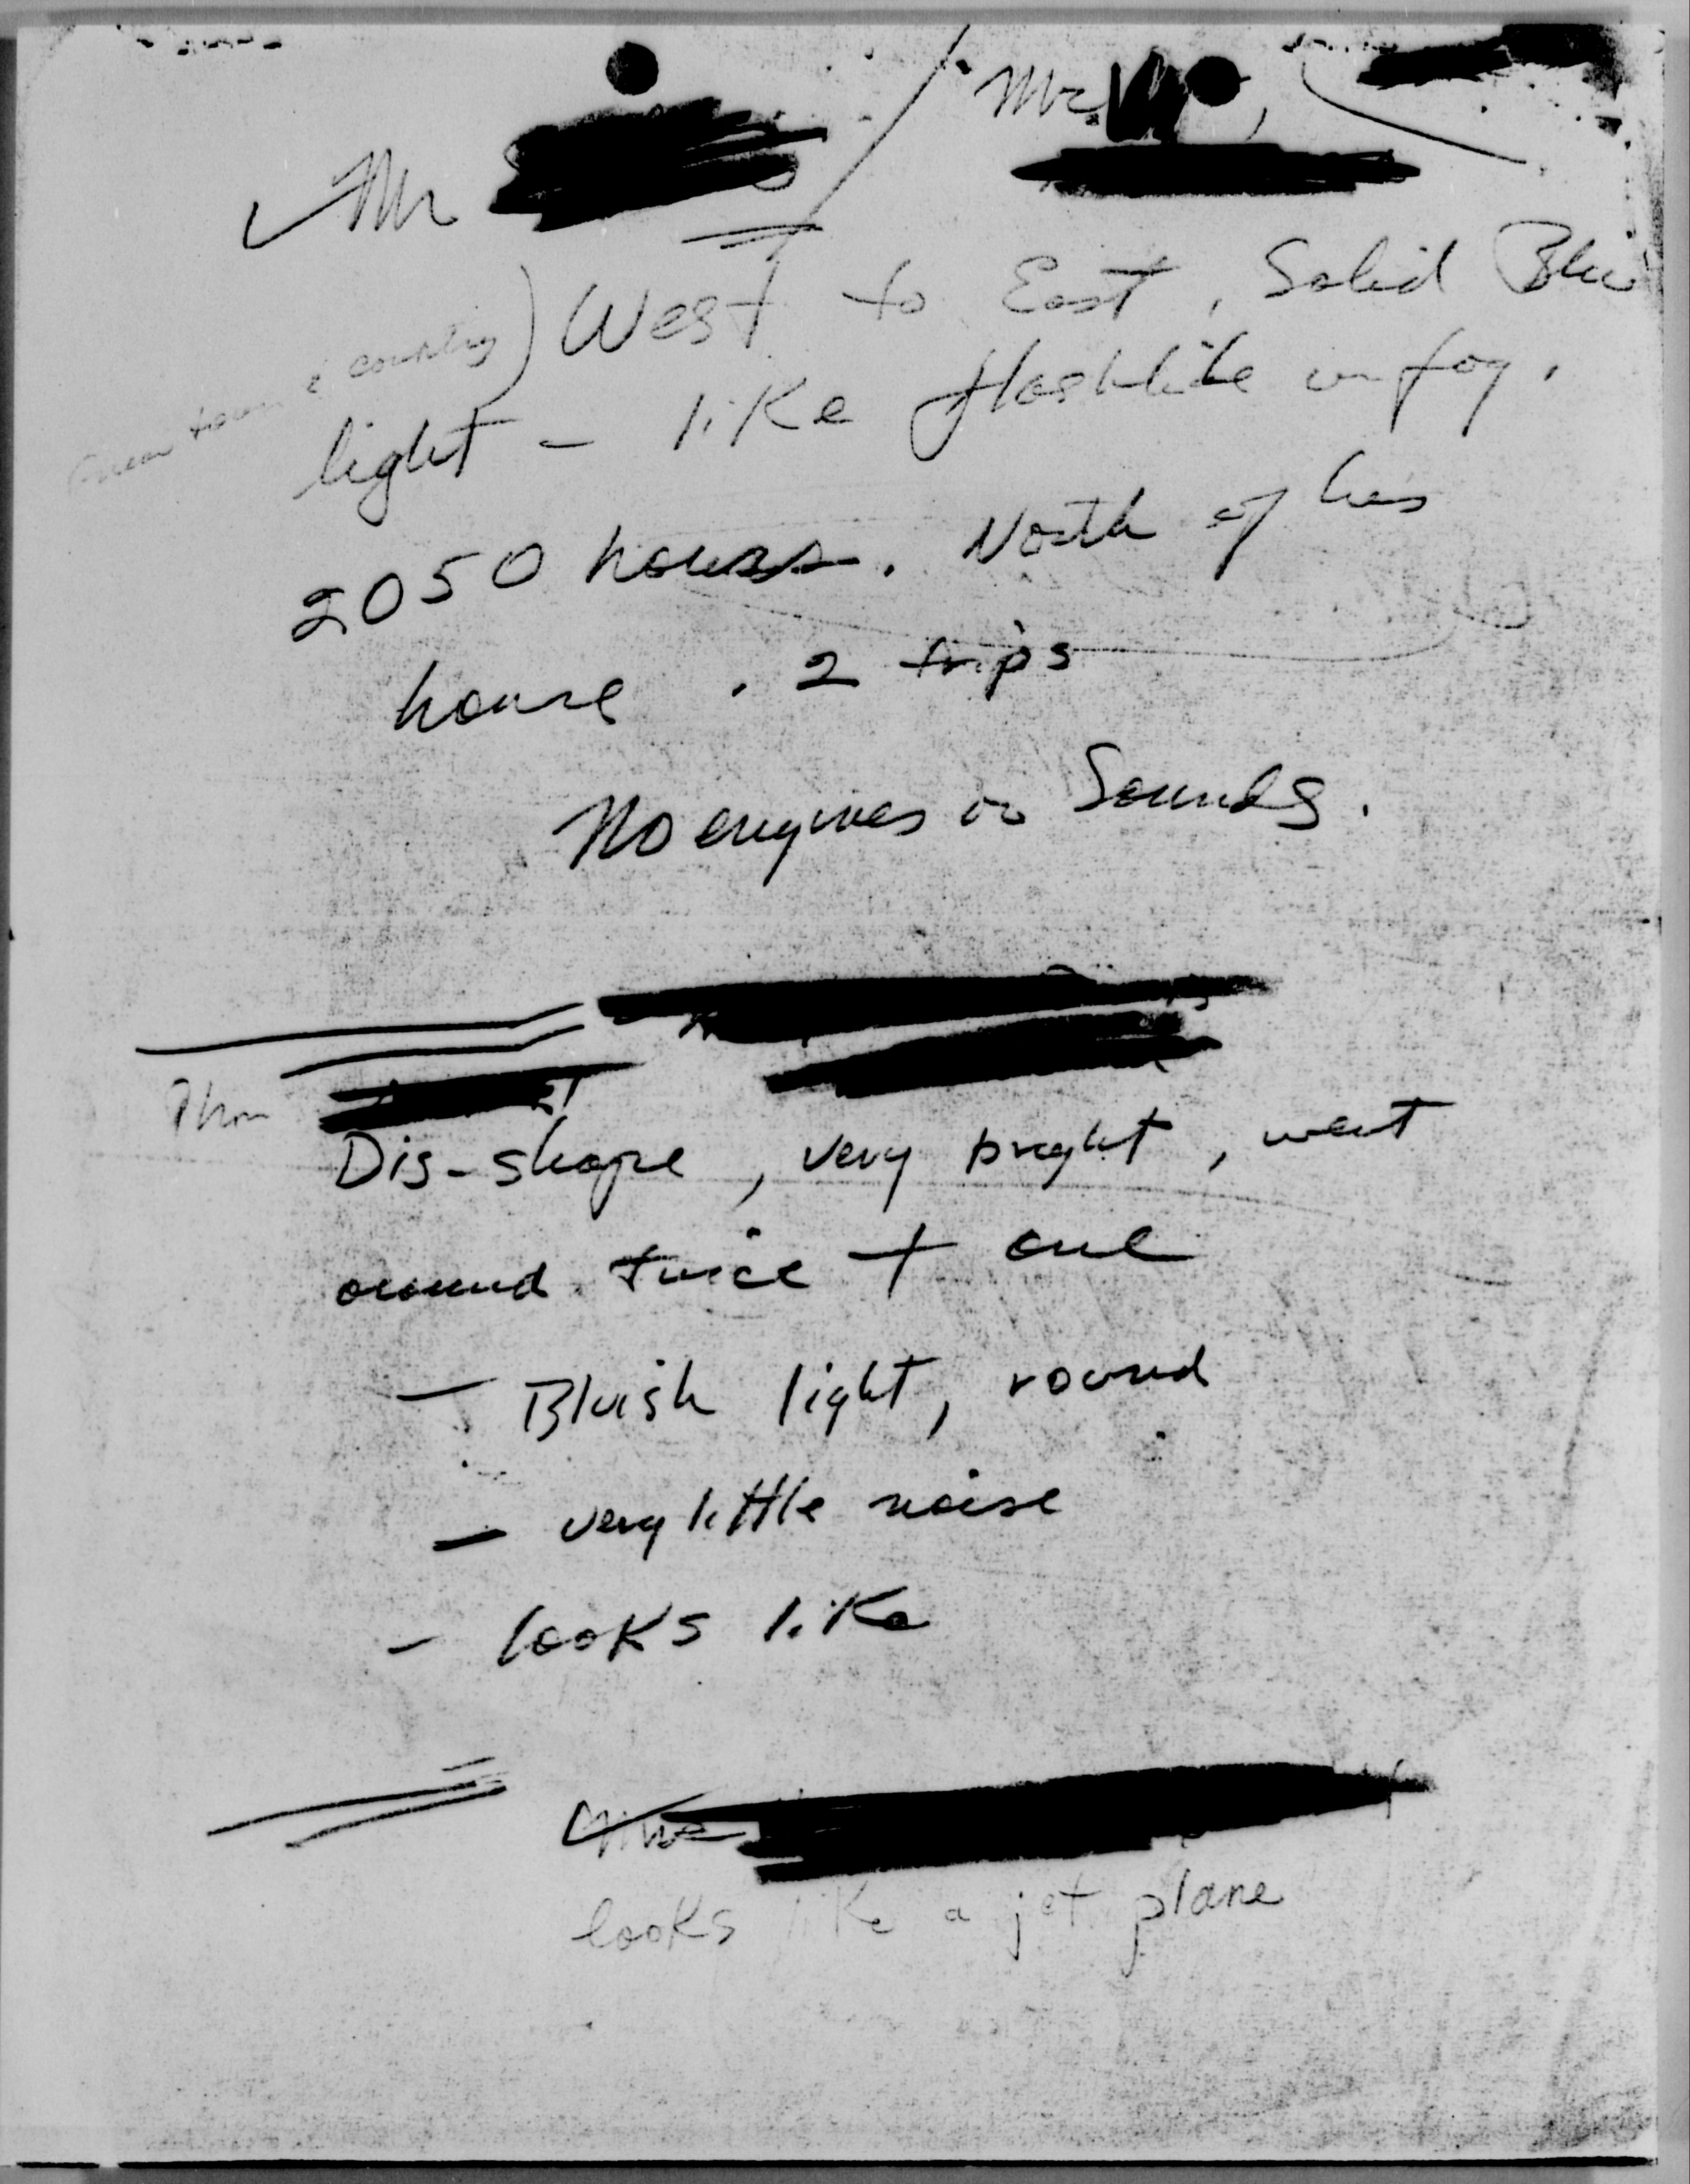 Mr / Mr.
West to East, Solid Blue
light - like flashlite in fog.
2050 hours. North of his
house. 2 trips
No engines or Sounds.
Dis-shape, very bright, went
around twice + one
- Bluish light, round
- very little noise
- looks like
looks like a jet plane